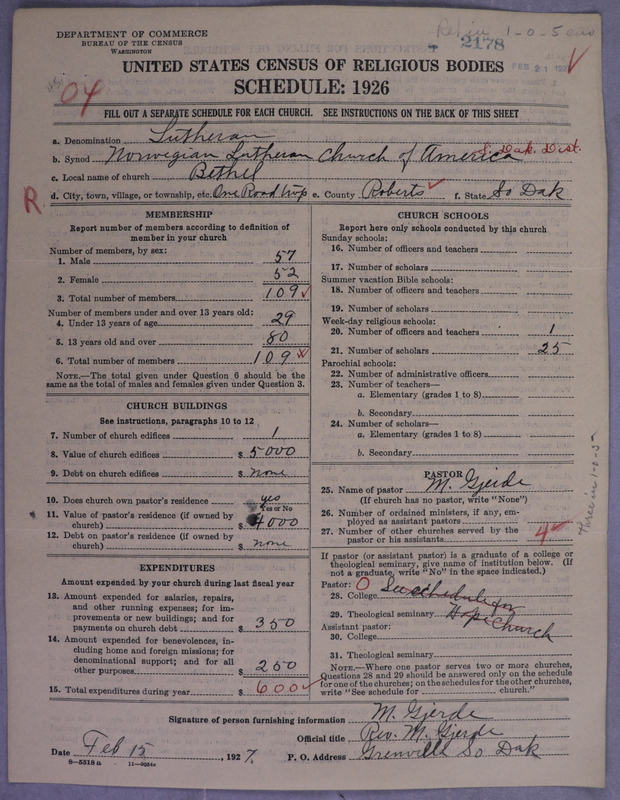 DEPARTMENT OF COMMERCE
BUREAU OF THE CENSUS
WASHINGTON
1-0-5
2178
FEB 21 192
UNITED STATES CENSUS OF RELIGIOUS BODIES
SCHEDULE: 1926
04
FILL OUT A SEPARATE SCHEDULE FOR EACH CHURCH. SEE INSTRUCTIONS ON THE BACK OF THIS SHEET
a. Denomination Lutheran
b. Synod Norwegian Lutheran Church of America S. Dak. Dist.
c. Local name of church Bethel
R
d. City, town, village, or township, etc. One Road twp e. County Roberts f. State So Dak
MEMBERSHIP
Report number of members according to definition of member in your church
Number of members, by sex:
1. Male 57
2. Female 52
3. Total number of members 109
Number of members under and over 13 years old:
4. Under 13 years of age 29
5. 13 years old and over 80
6. Total number of members 109
NOTE.—The total given under Question 6 should be the
same as the total of males and females given under Question 3.
CHURCH BUILDINGS
See instructions, paragraphs 10 to 12
7. Number of church edifices 1
8. Value of church edifices $ 5000
9. Debt on church edifices $ none
10. Does church own pastor's residence yes
Yes or No
11. Value of pastor's residence (if owned by
church) $ 4000
12. Debt on pastor's residence (if owned by
church) $ none
EXPENDITURES
Amount expended by your church during last fiscal year
13. Amount expended for salaries, repairs,
and other running expenses; for im-
provements or new buildings; and for
payments on church debt $ 350
14. Amount expended for benevolences, in-
cluding home and foreign missions; for
denominational support; and for all
other purposes $ 250
15. Total expenditures during year $ 600
CHURCH SCHOOLS
Report here only schools conducted by this church
Sunday schools:
16. Number of officers and teachers
17. Number of scholars
Summer vacation Bible schools:
18. Number of officers and teachers
19. Number of scholars
Week-day religious schools:
20. Number of officers and teachers 1
21. Number of scholars 25
Parochial schools:
22. Number of administrative officers
23. Number of teachers—
a. Elementary (grades 1 to 8)
b. Secondary
24. Number of scholars—
a. Elementary (grades 1 to 8)
b. Secondary
PASTOR
25. Name of pastor M. Gjerde
(If church has no pastor, write "None")
26. Number of ordained ministers, if any, em-
ployed as assistant pastors
27. Number of other churches served by the
pastor or his assistants 4
If pastor (or assistant pastor) is a graduate of a college or
theological seminary, give name of institution below. (If
not a graduate, write "No" in the space indicated.)
Pastor: O
28. College See schedule for
29. Theological seminary Hope Church
Assistant pastor:
30. College
31. Theological seminary
NOTE.—Where one pastor serves two or more churches,
Questions 28 and 29 should be answered only on the schedule
for one of the churches; on the schedules for the other churches,
write "See schedule for ........ church."
Signature of person furnishing information M. Gjerde
Official title Rev. M. Gjerde
Date Feb 15, 1927. P. O. Address Grenville So Dak
8-5518a 11-9054a